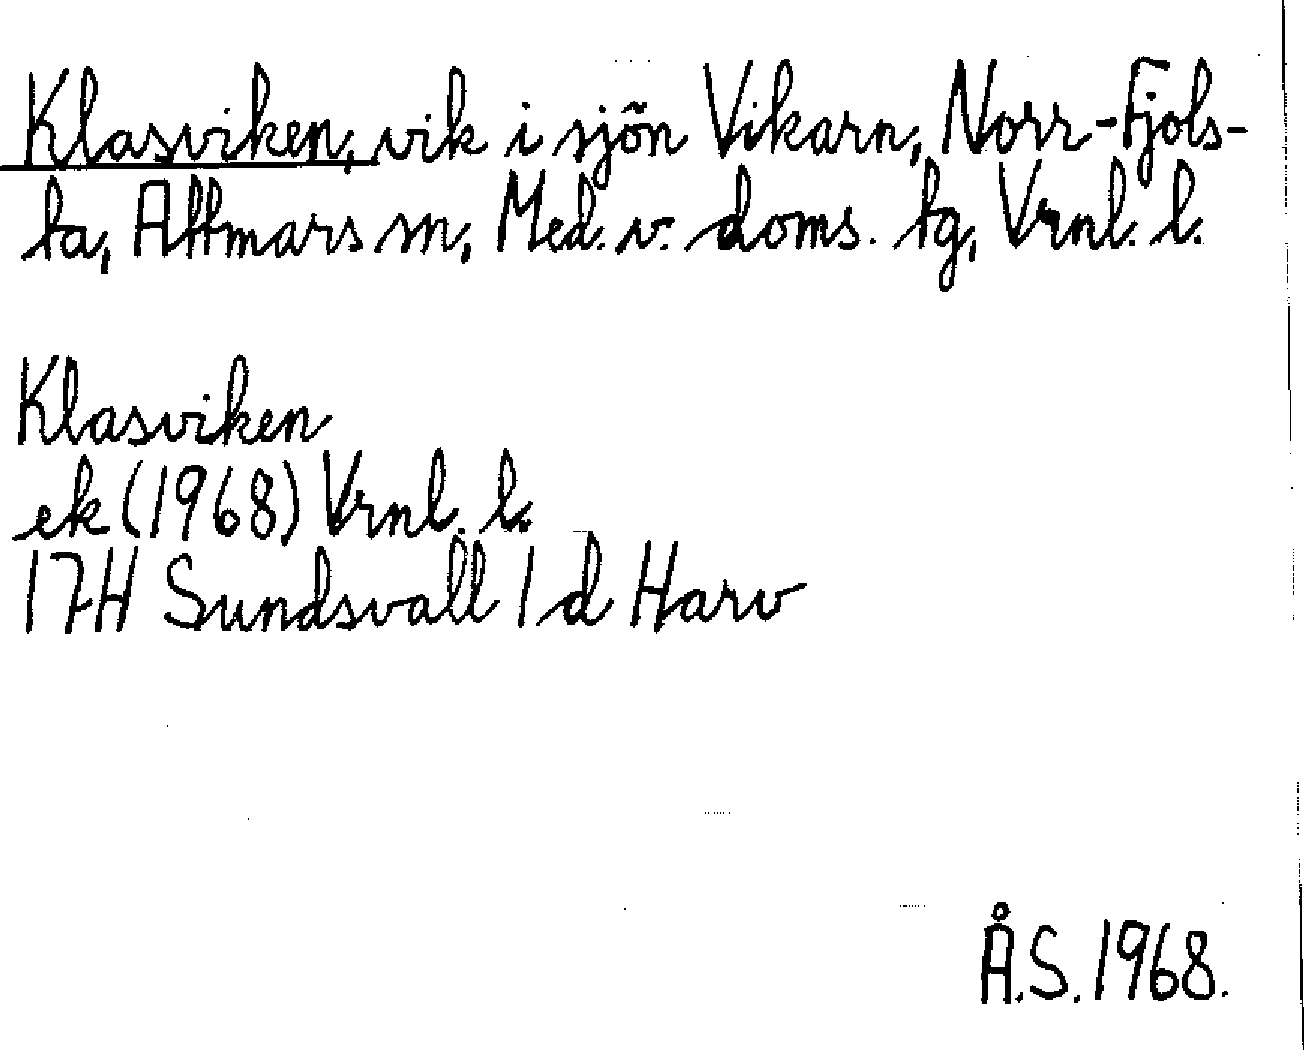 Klasviken, vik i sjön Vikarn, Norr-Fjols-
ta, Attmars sn, Med. v. doms. tg, Vrnl. l.
Klasviken
ek (1968) Vrnl. l.
17H Sundsvall 1 d Harv
Å.S. 1968.